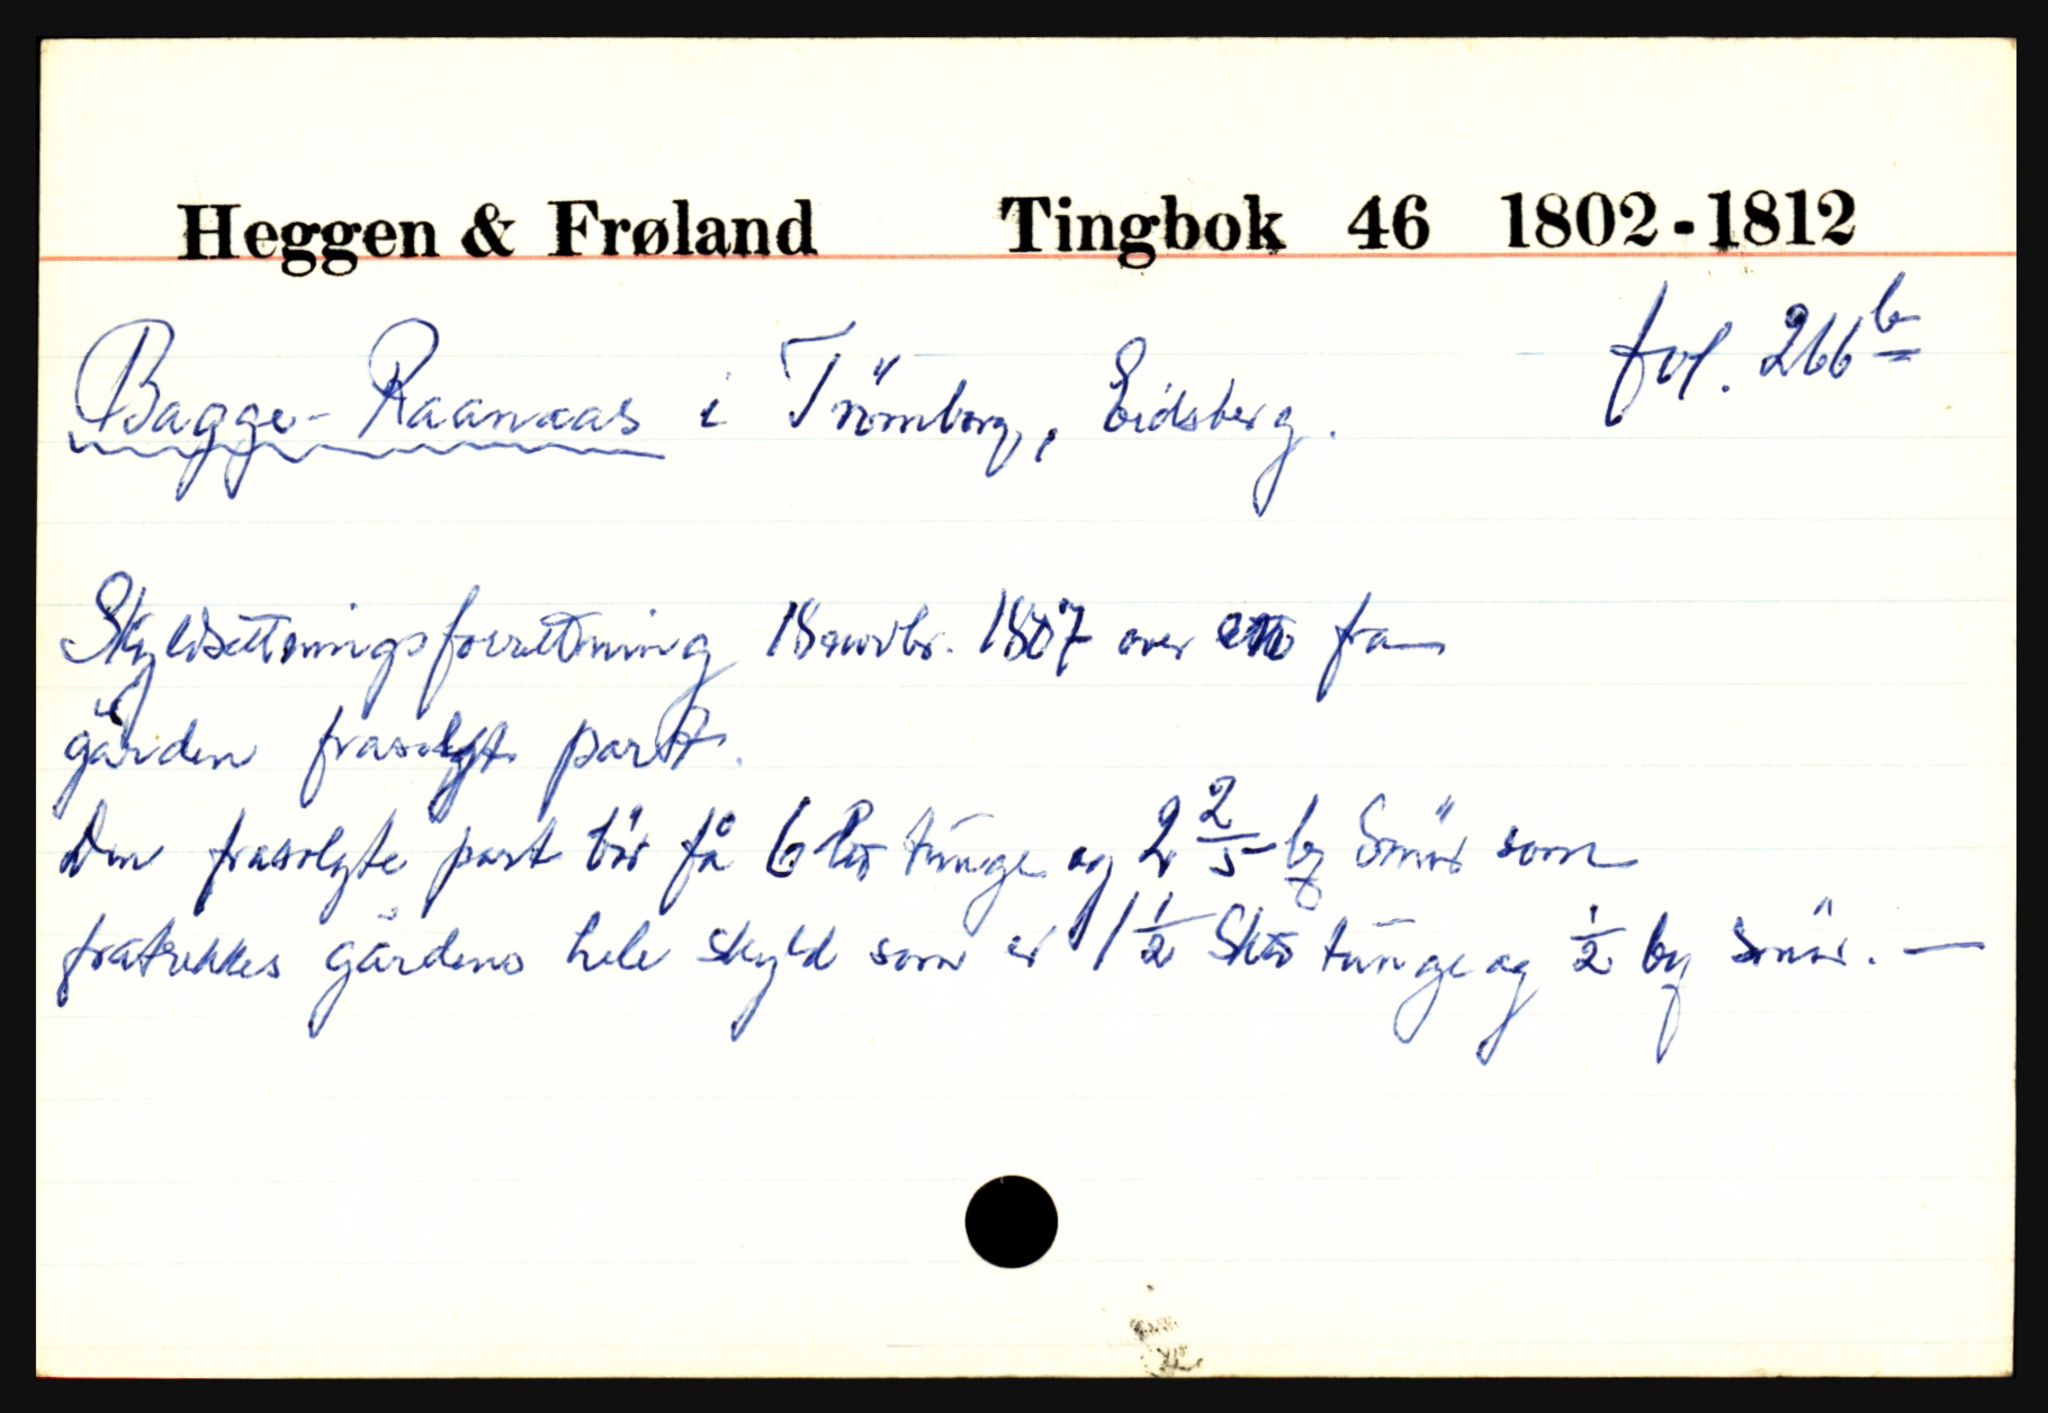 Heggen & Frøland Tingbok 46 1802-1812
fol. 266b
Bagge-Raanaas i Trömborg, Eidsberg.
Skyldsettningsforrettning 18 novbr. 1807 over en fra
gården frasolgt part.
Den frasolgte part bör få 6 tunge og 2 2/5 Smör som
fratrekkes gårdens hele skyld som er 1 1/2 tunge og 1/2 Smör. —